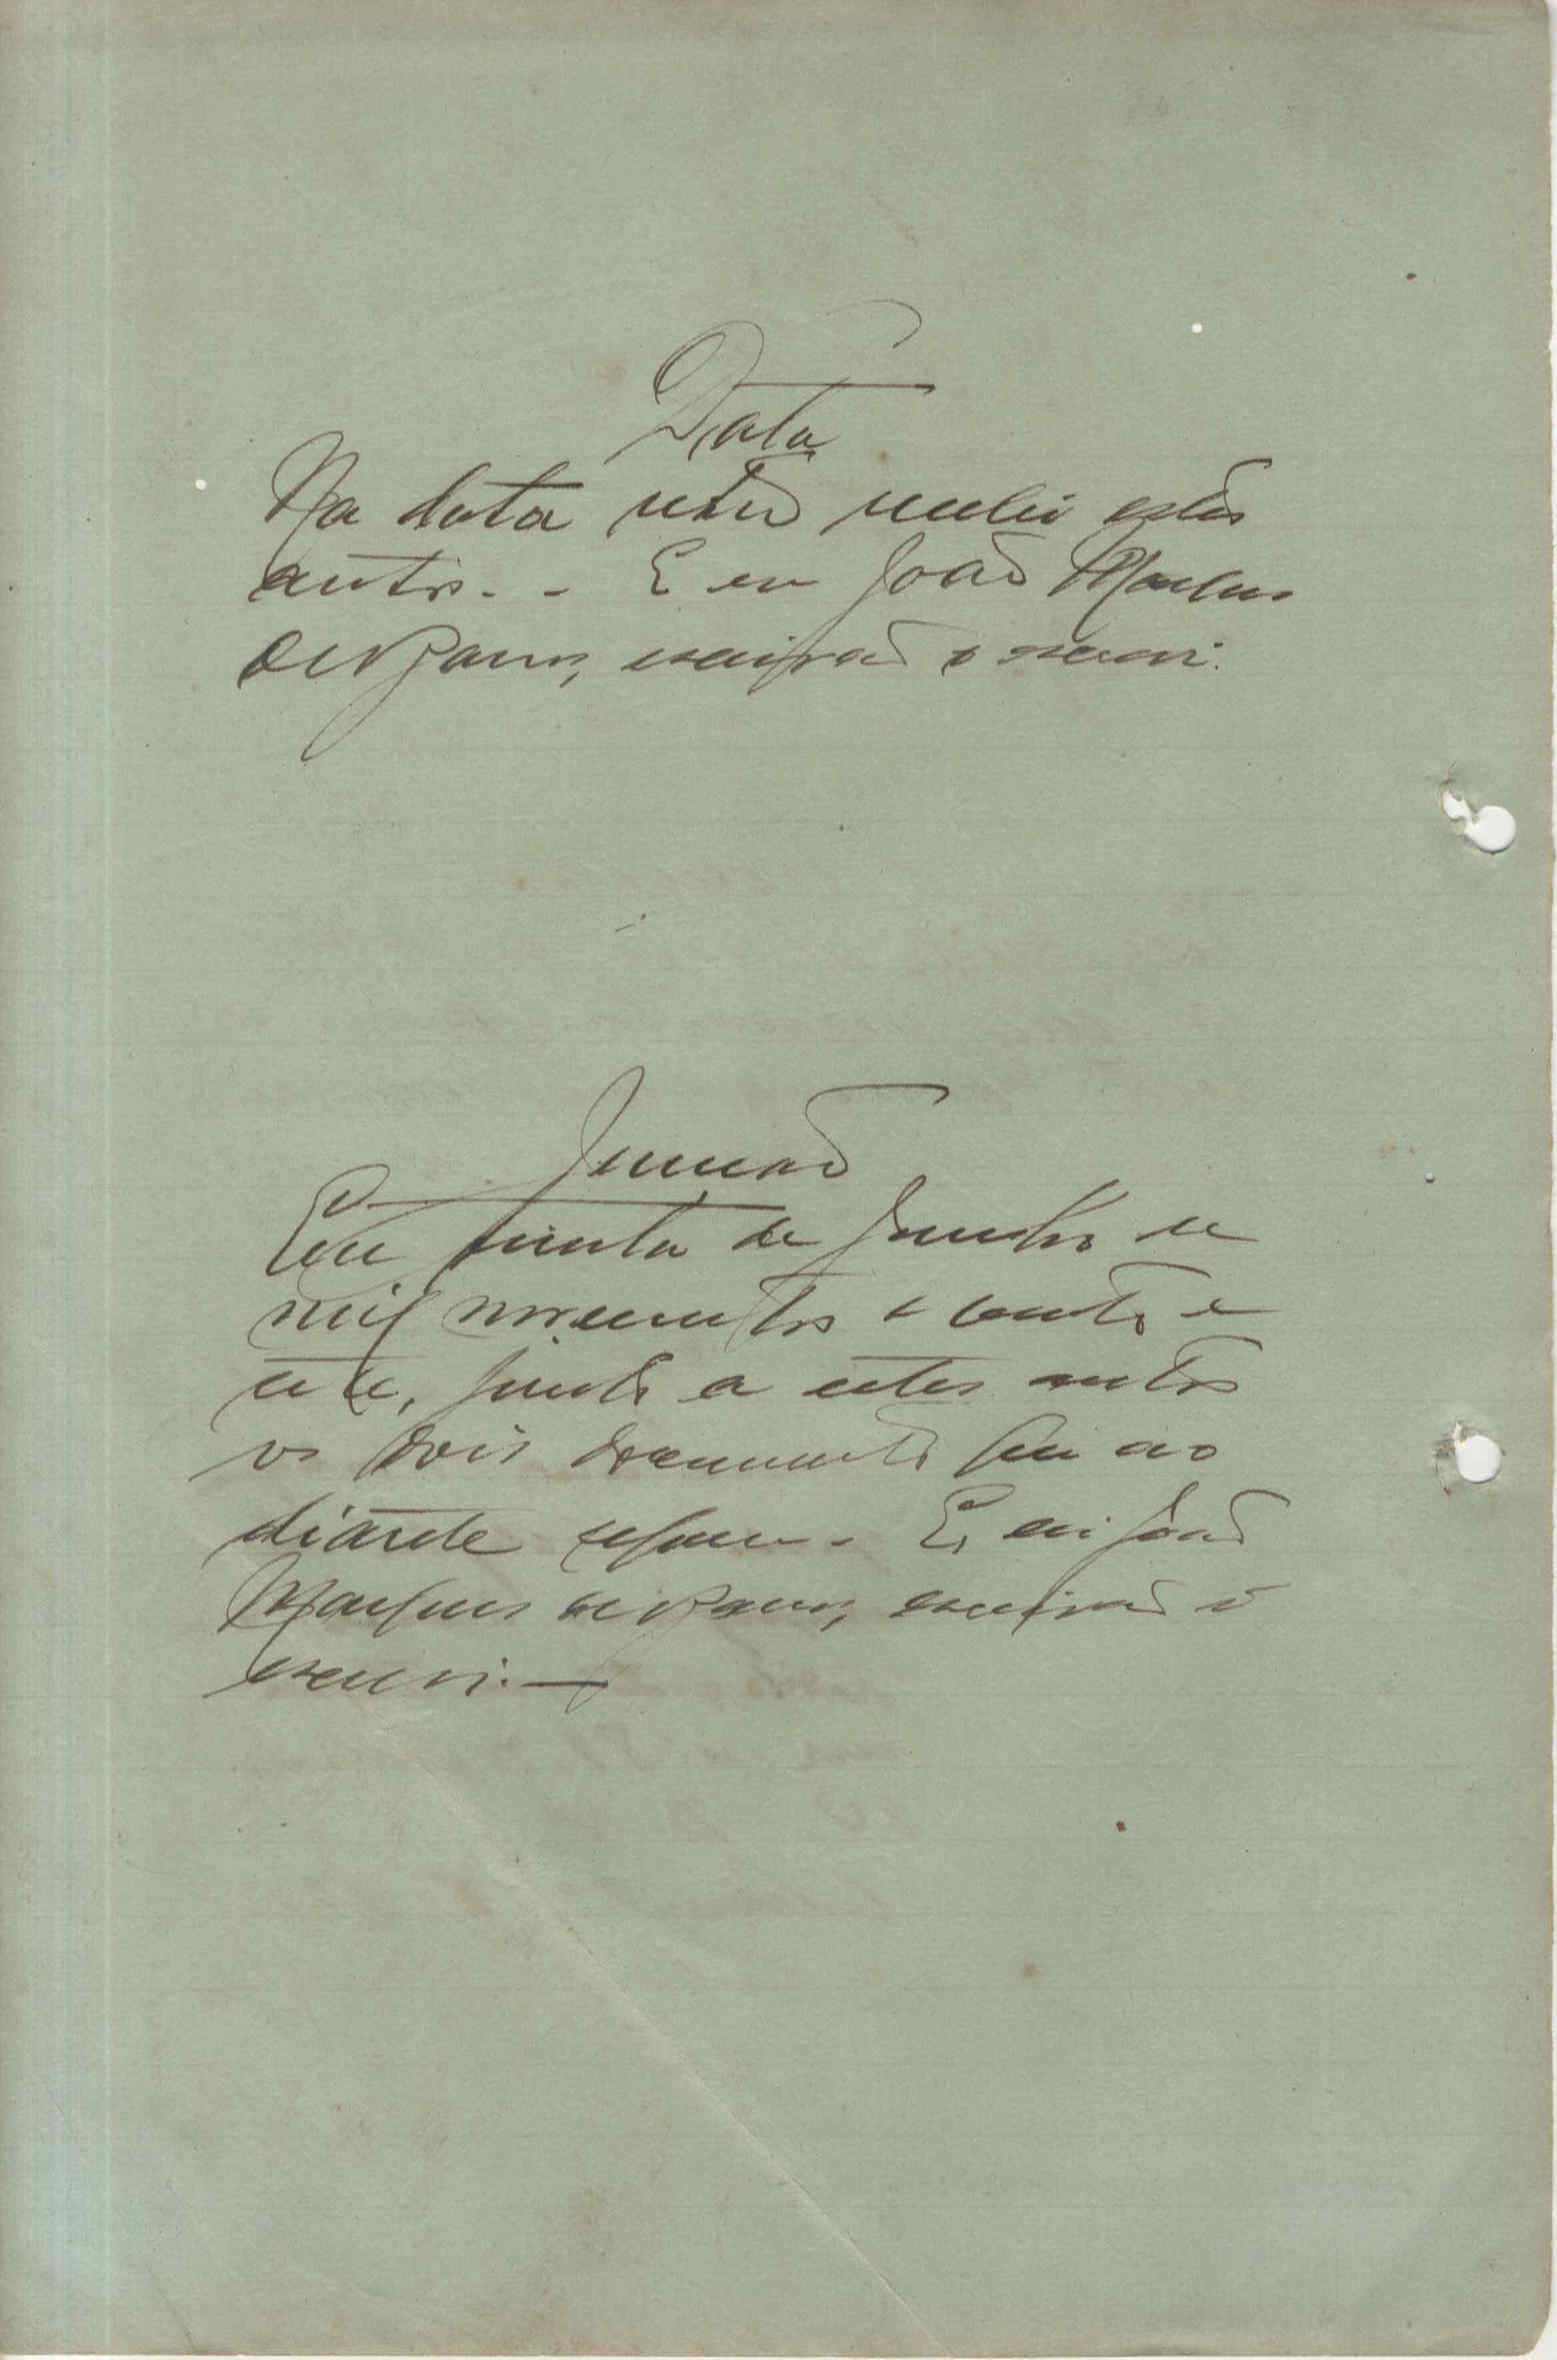 Data
Na data retro recebi estes
autos. - E eu João Marques
escrivão o escrevi.
Juntada
Em trinta de Junho de
mil novecentos e vinte e
sete, junto a estes autos
os dois documentos que ao
diante seguem. E, eu João
Marques escrivão o
escrevi. —